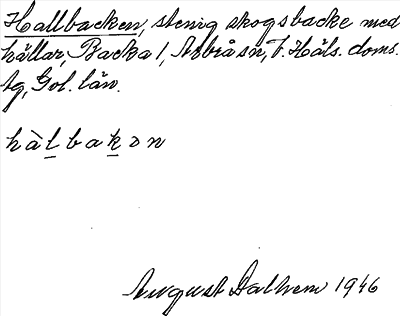 Hallbacken, stenig skogsbacke med
hällar, Backa 1, Arbråsn, V. Häls. doms.
tg, Gvl. län.
hàlbakɔn
August Dalhem 1946